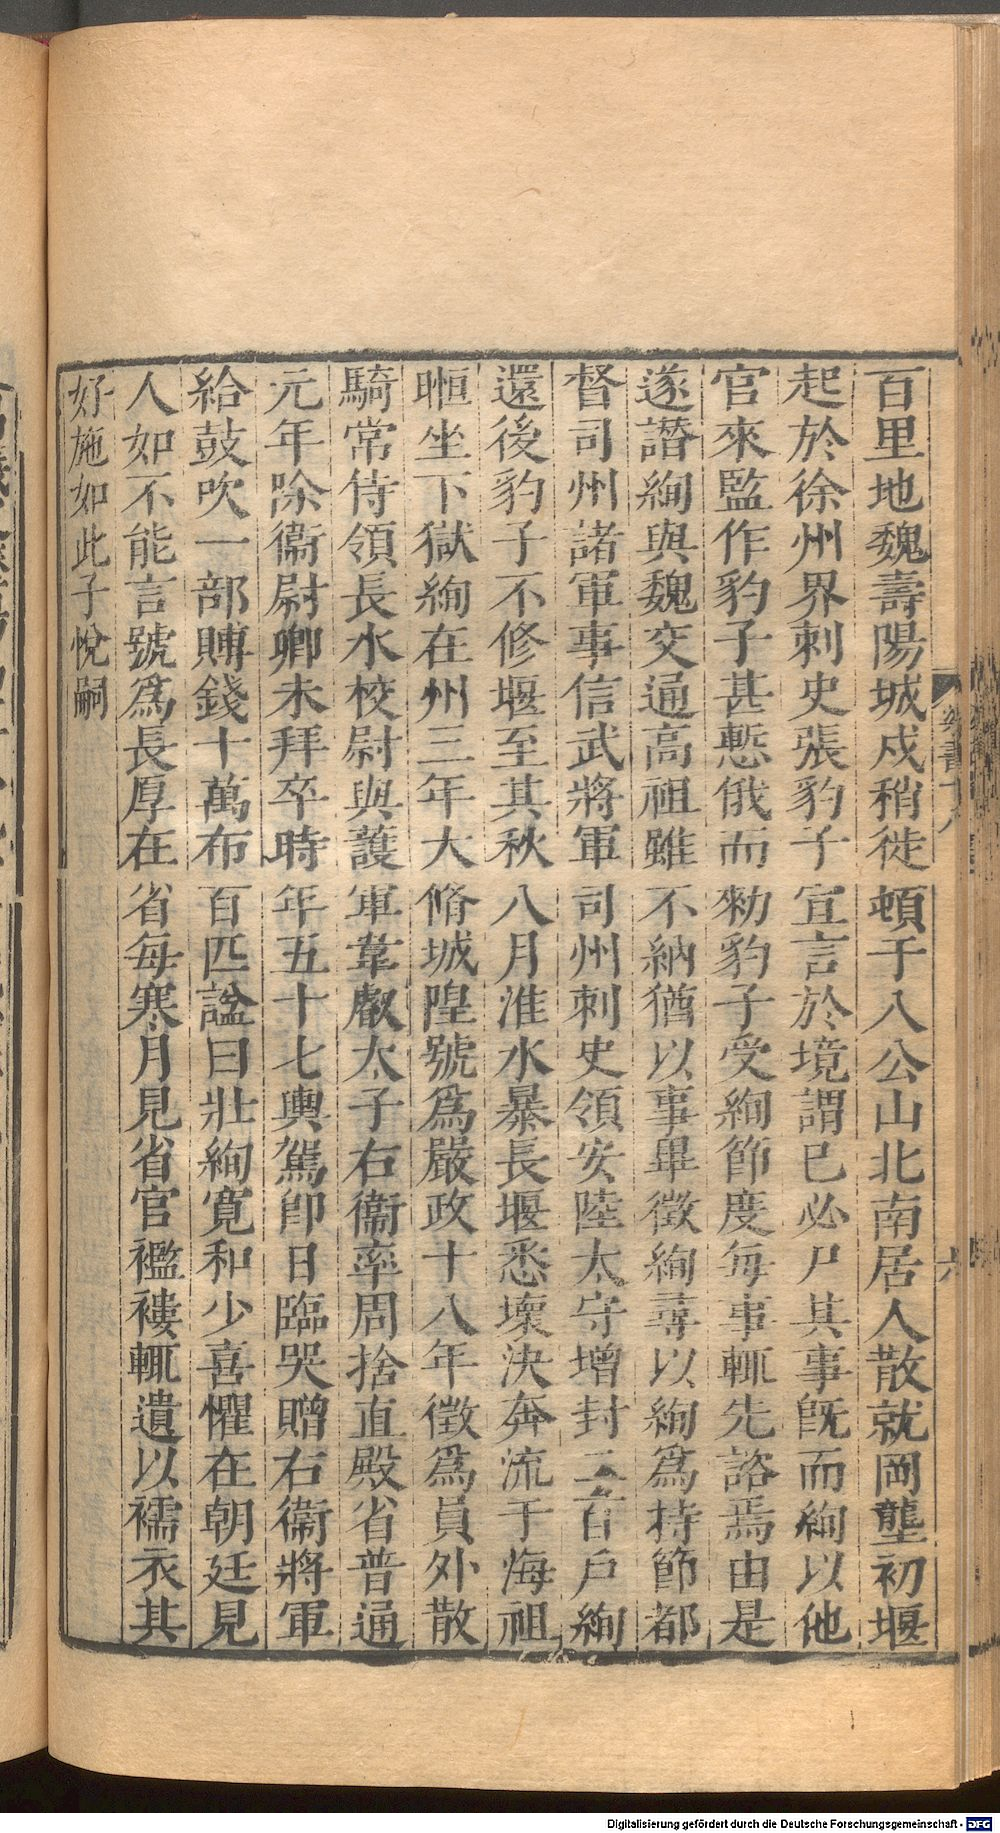 百里地魏壽陽城戍稍徙頓于八公山北南居人散就岡壟初堰
起於徐州界刺史張豹子宣言於境謂已必尸其事旣而絢以他
官來監作豹子甚慙俄而勑豹子受絢節度每事輒先諮焉由是
遂譖絢與魏交通高祖雖不納猶以事畢徵絢尋以絢爲持節都
督司州諸軍事信武將軍司州刺史領安陸太守增封二百戶絢
還後豹子不修堰至其秋八月淮水暴長堰悉壞決奔流于海祖
暅坐下獄絢在州三年大脩城隍號爲嚴政十八年徵爲員外散
騎常侍領長水校尉與護軍韋叡太子右衞率周捨直殿省普通
元年除衞尉卿未拜卒時年五十七輿駕卽日臨哭贈右衞將軍
給鼓吹一部賻錢十萬布百匹諡曰壯絢寬和少喜懼在朝廷見
人如不能言號爲長厚在省每寒月見省官襤褸輒遺以襦衣其
好施如此子悅嗣
梁書十八
六
Digitalisierung gefördert durch die Deutsche Forschungsgemeinschaft - DFG